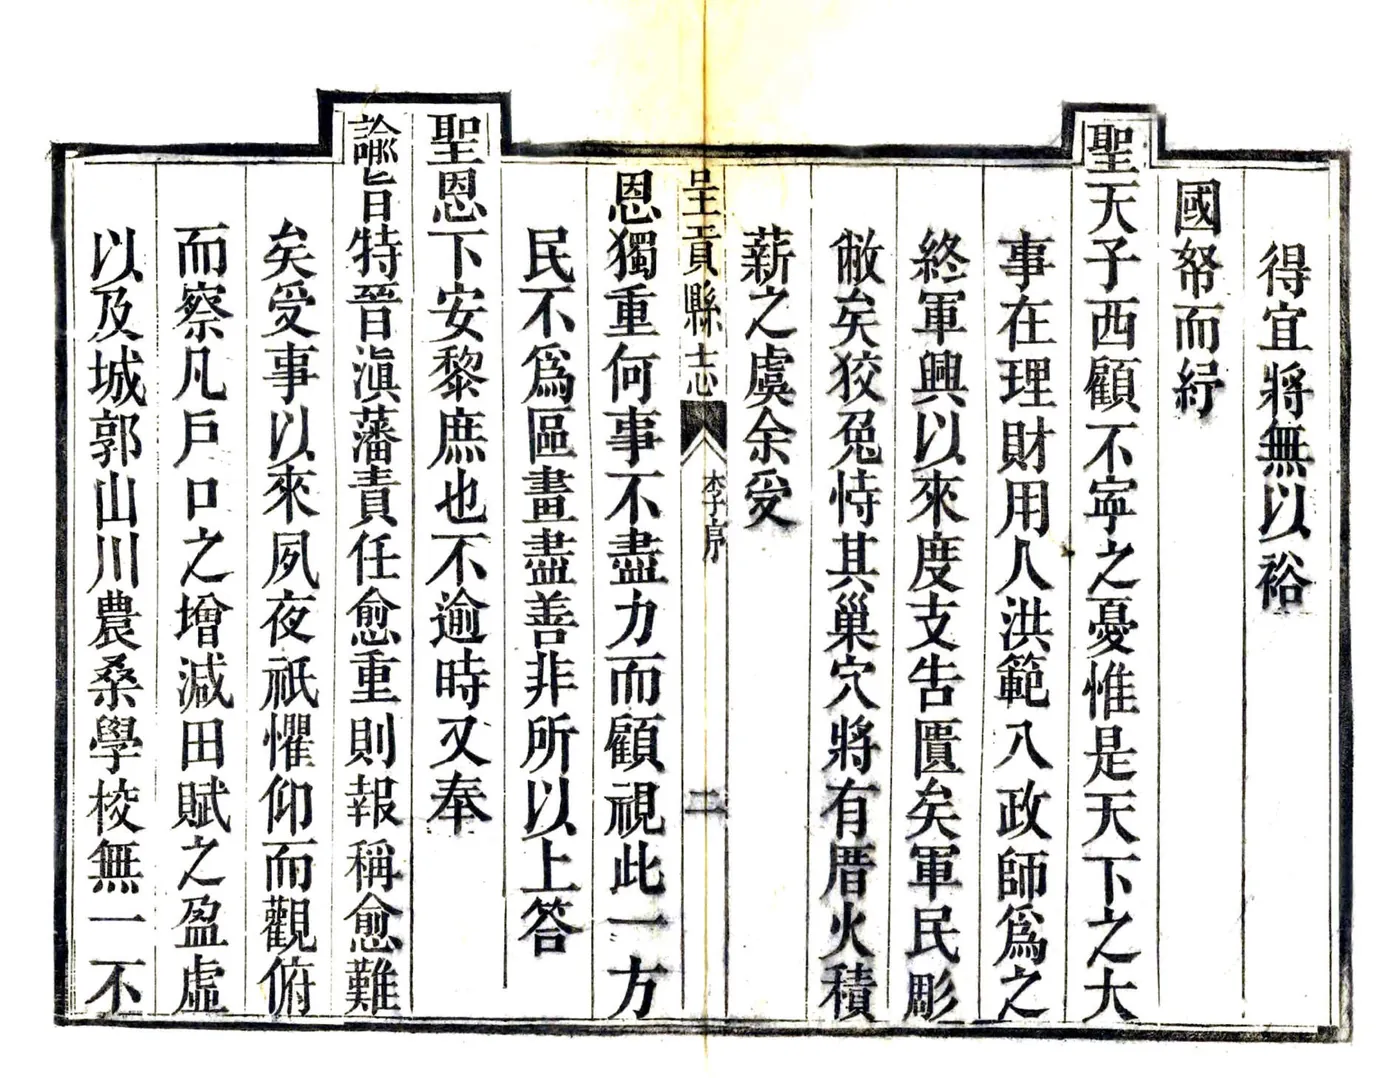 得宜將無以裕
國帑而紓
聖天子西顧不寧之憂惟是天下之大
事在理財用人洪範八政師為之
終軍興以來度支告匱矣軍民彫
敝矣狡兔恃其巢穴將有厝火積
薪之虞余受
呈貢縣志
李序
二
恩獨重何事不盡力而顧視此一方
民不為區畫盡善非所以上答
聖恩下安黎庶也不逾時又奉
諭旨特晉滇藩責任愈重則報稱愈難
矣受事以來夙夜祇懼仰而觀俯
而察凡戶口之增減田賦之盈虛
以及城郭山川農桑學校無一不